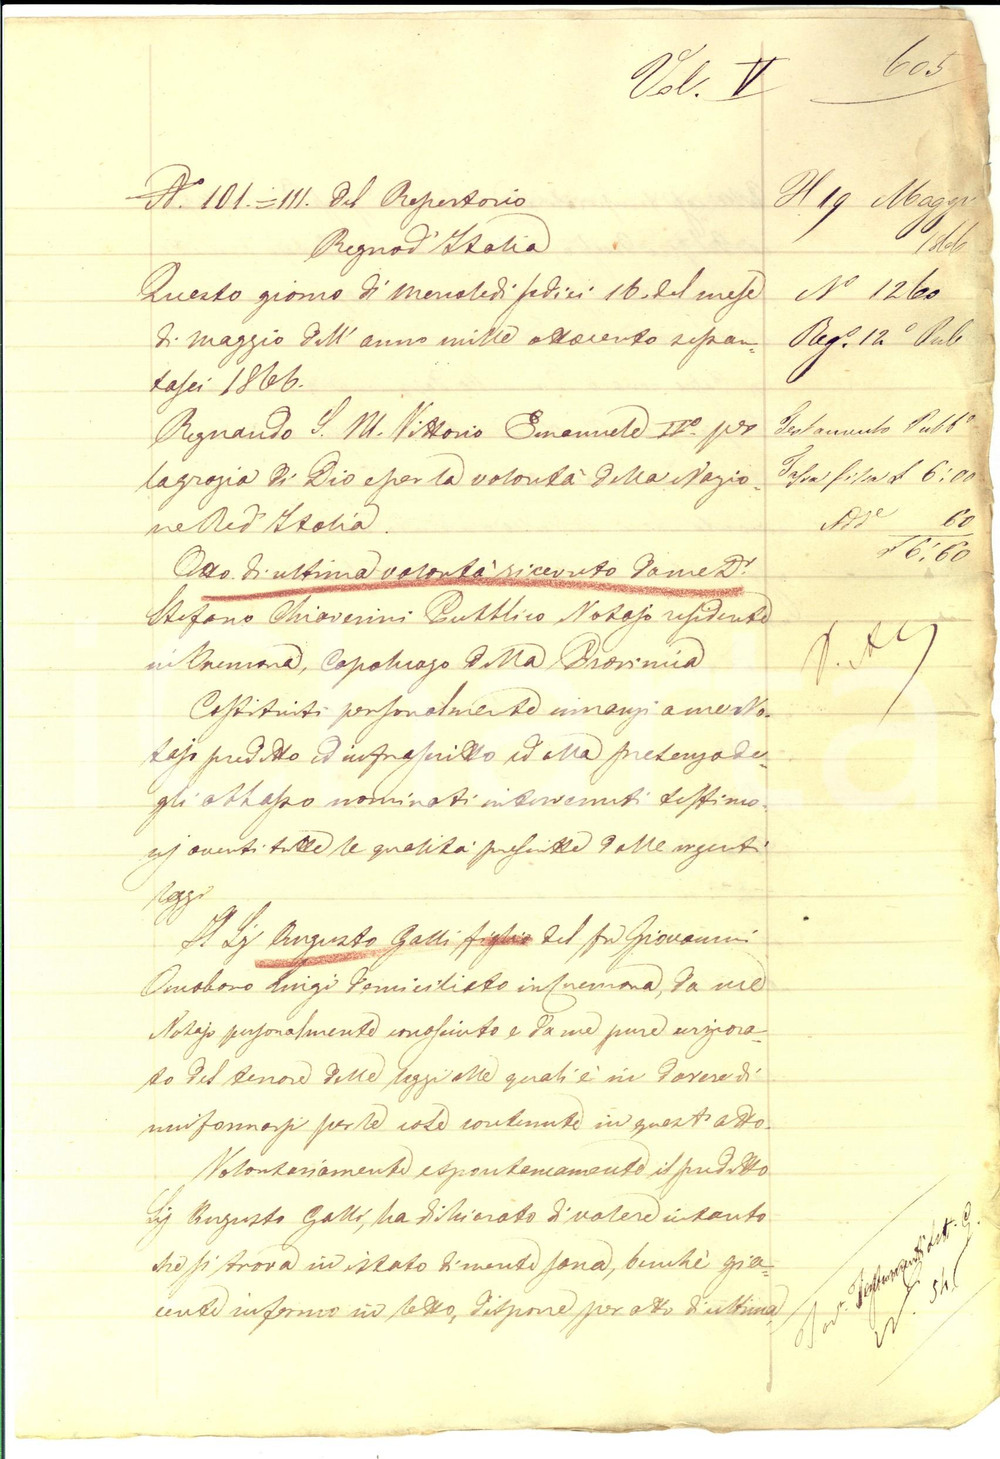 Vol. V
605
N.° 101.=111. del Repertorio
Regno d'Italia
Questo giorno di mercoledì sedici 16. del mese
di maggio dell'anno mille ottocento sessan-
tasei 1866.
Regnando S. M. Vittorio Emanuele II°. per
la grazia di Dio e per la volontà della Nazio-
ne Re d'Italia.
Atto di ultima volontà ricevuto da me D.r
Stefano Chiaverini Pubblico Notajo residente
in Cremona, Capoluogo della Provincia
Costituiti personalmente innanzi a me No-
tajo predetto ed infrascritto ed alla presenza de-
gli abbasso nominati intervenuti testimo-
nj aventi tutte le qualità prescritte dalle vigenti
leggi
Il Sig. Augusto Galli figlio del fu Giovanni
Omobono Luigi domiciliato in Cremona, da me
Notajo personalmente conosciuto e da me pure
to del tenore delle leggi alle quali è in dovere di
uniformarsi per le cose contenute in quest'atto.
Volontariamente e spontaneamente il predetto
Sig. Augusto Galli, ha dichiarato di volere intanto
che si trova in istato di mente sana, benchè gia-
cente infermo in letto, disporre per atto d'ultima
Il 19 Maggio
1866
N° 1260
Reg.° 12° Pub
Testamento Pubb°
Tassa fissa £ 6:00
Add.e 60
£ 6:60
N. 54.